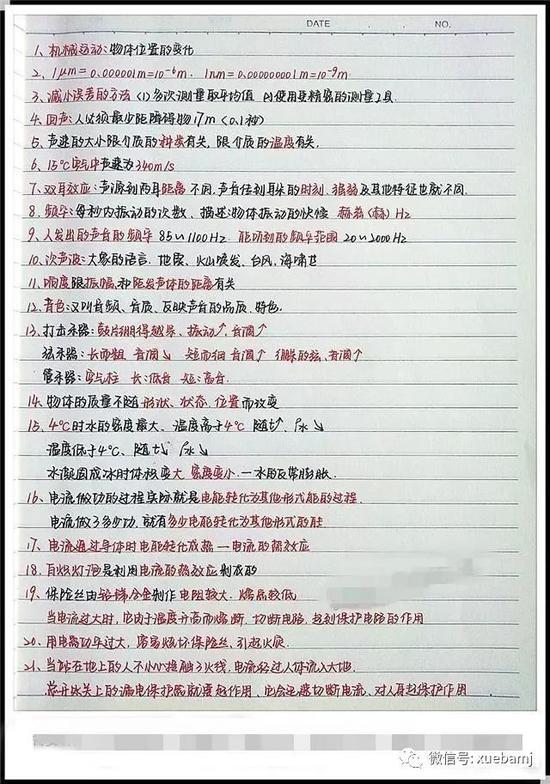 DATE NO.
1、机械运动：物体位置的变化
2、1μm=0.000001m=10⁻⁶m. 1nm=0.000000001m=10⁻⁹m.
3、减小误差的方法 (1)多次测量取平均值 (2)使用更精密的测量工具.
4、回声：人必须最少距障碍物17m（0.1秒）
5、声速的大小跟介质的种类有关，跟介质的温度有关.
6、15℃空气中声速为340m/s
7、双耳效应：声源到两耳距离不同，声音传到耳朵的时刻、强弱及其他特征也就不同.
8、频率：每秒内振动的次数、描述物体振动的快慢 赫兹（赫）Hz
9、人发出的声音的频率 85～1100Hz. 能听到的频率范围 20～2000Hz
10、次声波：大象的语言，地震、火山喷发、台风，海啸
11、响度跟振幅，和距发声体的距离有关
12、音色：又叫音频、音质、反映声音的品质，特色.
13、打击乐器：鼓片绷得越紧、振动↑，音调↑
弦乐器：长而粗 音调↓ 短而细 音调↑ 绷紧的弦、音调↑
管乐器：空气柱 长：低音 短：高音.
14、物体的质量不随 形状、状态、位置而改变
15、4℃时水的密度最大、温度高于4℃ 随t↑ ρ水↓
温度低于4℃、随t↓ ρ水↓
水凝固成冰时体积变大 密度变小 — 水的反常膨胀.
16、电流做功的过程实际就是电能转化为其他形式能的过程.
电流做了多少功，就有多少电能转化为其他形式的能
17、电流通过导体时电能转化成热 — 电流的热效应
18、白炽灯泡是利用电流的热效应制成的
19、保险丝由铅锑合金制作 电阻较大、熔点较低
当电流过大时，它由于温度升高而熔断，切断电路，起到保护电路的作用
20、用电器功率过大，容易烧坏保险丝、引起火灾
21、当站在地上的人不小心接触了火线，电流经过人体流入大地.
总开关上的漏电保护器就要起作用、它会迅速切断电流、对人身起保护作用
微信号: xuebamj